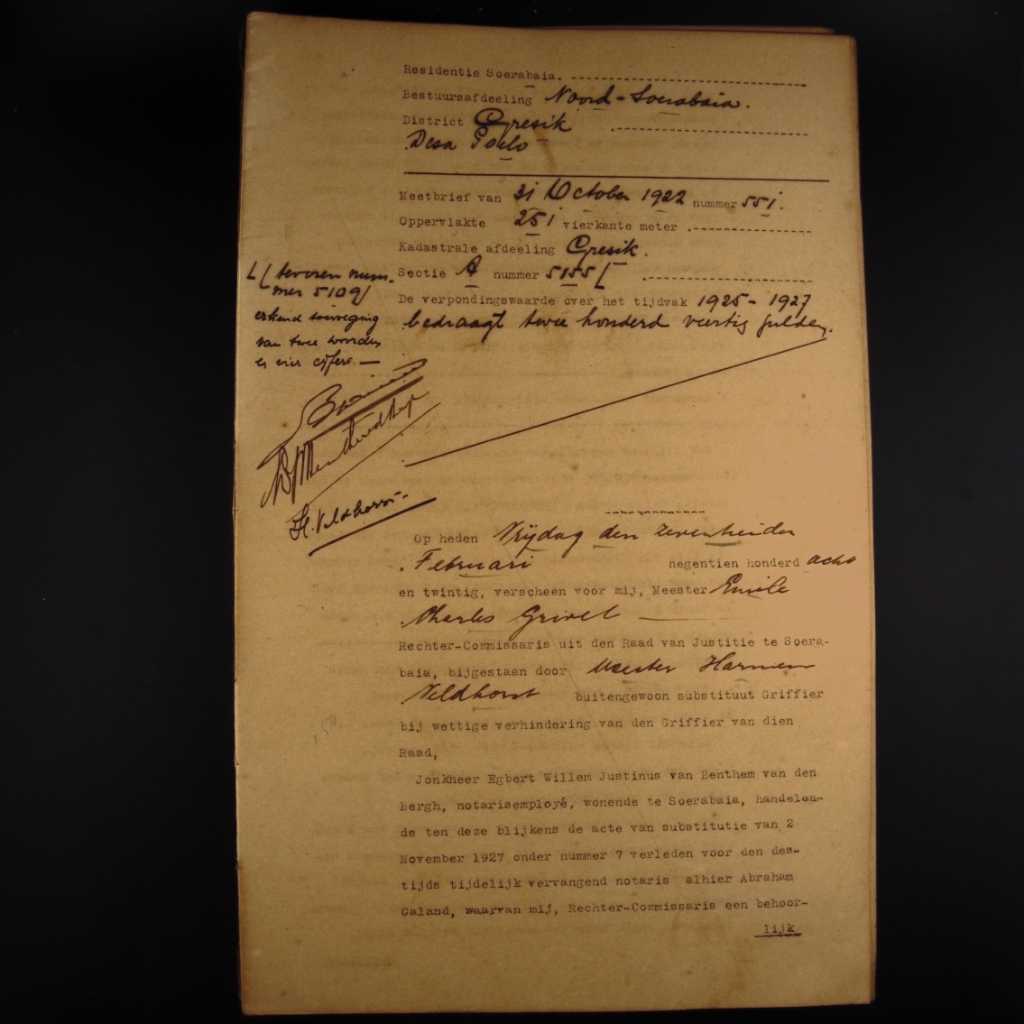 Residentie Soerabaia.
Bestuursafdeeling Noord-Soerabaia.
District Gresik
Desa
Meetbrief van 31 October 1922 nummer 551.
Oppervlakte 251 vierkante meter
Kadastrale afdeeling Gresik.
Sectie A nummer 5155
De verpondingswaarde over het tijdvak 1925-1927
bedraagt twee honderd veertig gulden.
tevoren num-
mer 5109/
erkend toevoeging
van twee woorden
en vier cijfers.
H. Veldhorst
Op heden Vrijdag den zeventienden
Februari negentien honderd acht
en twintig, verscheen voor mij, Meester Emile
Charles Grivel
Rechter-Commissaris uit den Raad van Justitie te Soera-
baia, bijgestaan door Meester Harmen
Veldhorst buitengewoon substituut Griffier
bij wettige verhindering van den Griffier van dien
Raad,
Jonkheer Egbert Willem Justinus van Benthem van den
Bergh, notarisemployé, wonende te Soerabaia, handelen-
de ten deze blijkens de acte van substitutie van 2
November 1927 onder nummer 7 verleden voor den des-
tijds tijdelijk vervangend notaris alhier Abraham
Galand, waarvan mij, Rechter-Commissaris een behoor-
lijk